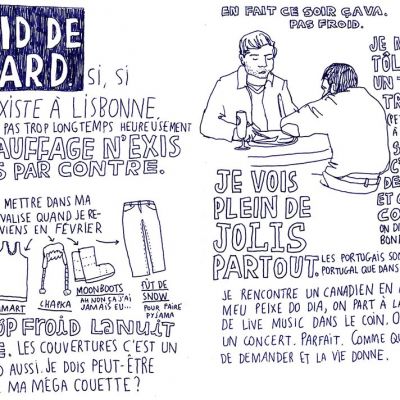 ID DE
ARD, SI, SI
XISTE À LISBONNE.
PAS TROP LONGTEMPS HEUREUSEMENT
AUFFAGE N'EXIS
S PAR CONTRE.
METTRE DANS MA
VALISE QUAND JE RE-
VIENS EN FÉVRIER
MART
CHAPKA
MOONBOOTS
AH NON ÇA J'AI
JAMAIS EU...
FÛT DE
SNOW
POUR FAIRE
PYJAMA
OP FROID LA NUIT
E. LES COUVERTURES C'EST UN
D AUSSI. JE DOIS PEUT-ÊTRE
MA MÉGA COUETTE ?
EN FAIT CE SOIR ÇAVA.
PAS FROID.
JE M
TÔL
UN T
TR
(PE
À
S
C
DE
ET C
CO
ON D
BON
JE VOIS
PLEIN DE
JOLIS
PARTOUT. LES PORTUGAIS SO
PORTUGAL QUE DANS
JE RENCONTRE UN CANADIEN EN
MEU PEIXE DO DIA, ON PART À LA
DE LIVE MUSIC DANS LE COIN. O
UN CONCERT. PARFAIT. COMME QU
DE DEMANDER ET LA VIE DONNE.